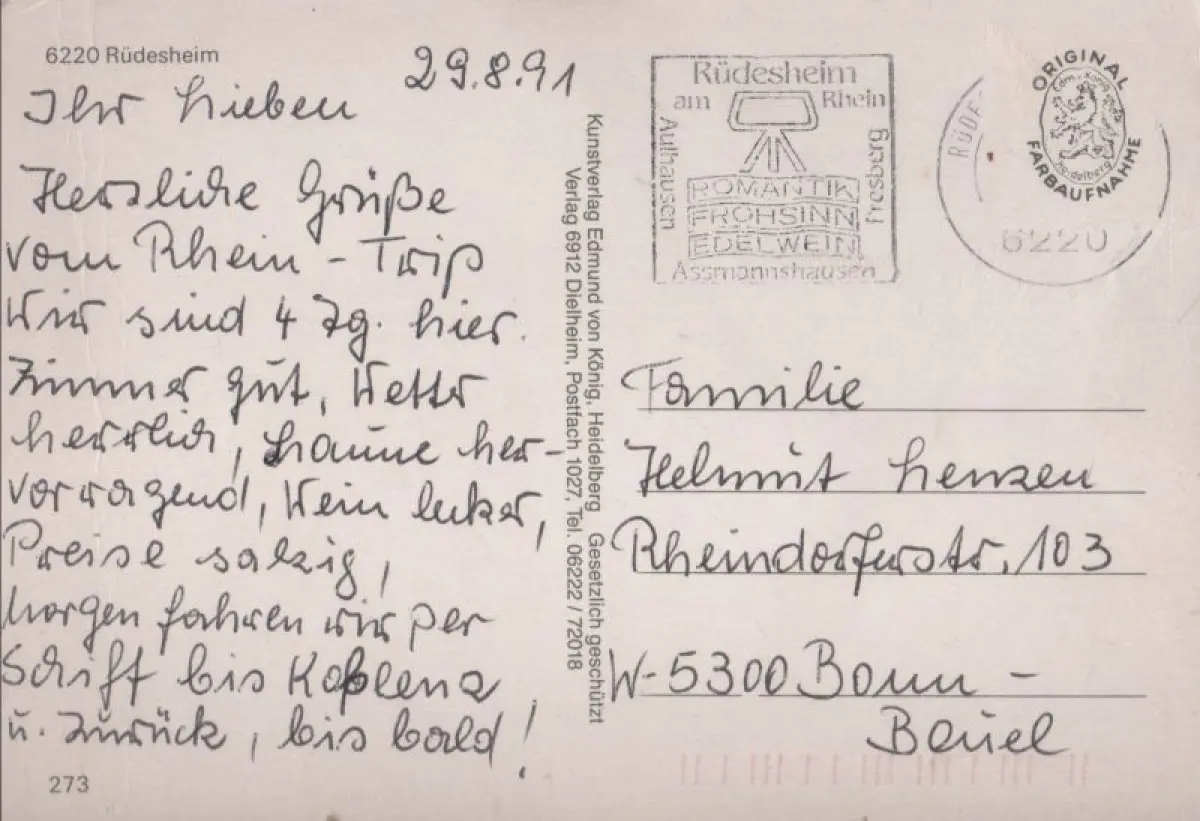 6220 Rüdesheim
29.8.91
Ihr Lieben
Herzliche Grüße
vom Rhein - Trip
Wir sind 4 Tg. hier.
Zimmer gut, Wetter
herrlich, Laune her-
vorragend, Wein lecker,
Preise salzig,
Morgen fahren wir per
Schiff bis Koblenz
u. zurück, bis bald!
273
Kunstverlag Edmund von König, Heidelberg Gesetzlich geschützt
Verlag 6912 Dielheim, Postfach 1027, Tel. 06222 / 72018
Rüdesheim
am Rhein
Aulhausen
Presberg
ROMANTIK
FROHSINN
EDELWEIN
Assmannshausen
RÜDE
6220
ORIGINAL
Edm. v. König
Heidelberg
FARBAUFNAHME
Familie
Helmut Lenzen
Rheindorferstr. 103
W-5300 Bonn -
Beuel